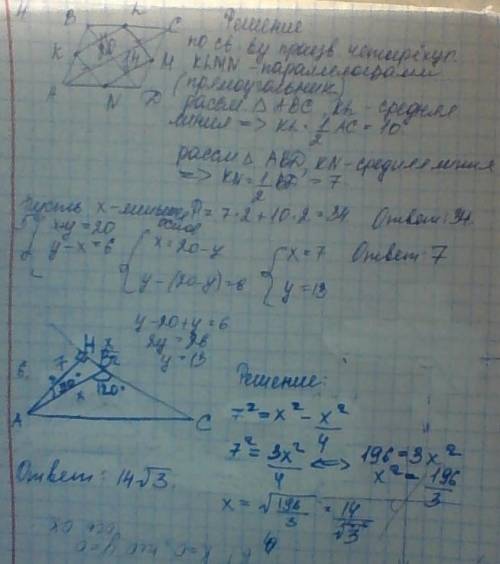 4.
B L C
Решение
K 20 14 M
по св. ву произв четырёхуг.
KLMN - параллелограмм
(прямоугольник)
A N D
рассм △ ABC, KL - средняя
линия => KL = 1/2 AC = 10
рассм △ ABD, KN - средняя линия
=> KN = 1/2 BD = 7
Пусть x - меньшее основ
P = 7·2 + 10·2 = 34 Ответ: 34.
5. { x+y = 20
y - x = 6
{ x = 20 - y
y - (20-y) = 6
{ x = 7
y = 13
Ответ: 7
y - 20 + y = 6
2y = 26
y = 13
6.
H x/2
7 B
30° 120°
x
A C
Решение:
7² = x² - x²/4
7² = 3x²/4 <=> 196 = 3x²
x² = 196/3
x = √196/3 = 14/√3
Ответ: 14√3.